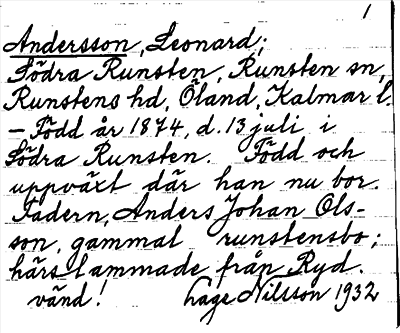 1
Andersson, Leonard;
Södra Runsten, Runsten sn,
Runstens hd, Öland, Kalmar l.
— Född år 1874, d. 13 juli i
Södra Runsten. Född och
uppväxt där han nu bor.
Fadern, Anders Johan Ols-
son, gammal runstensbo;
härstammade från Ryd.
vänd! Lage Nilsson 1932